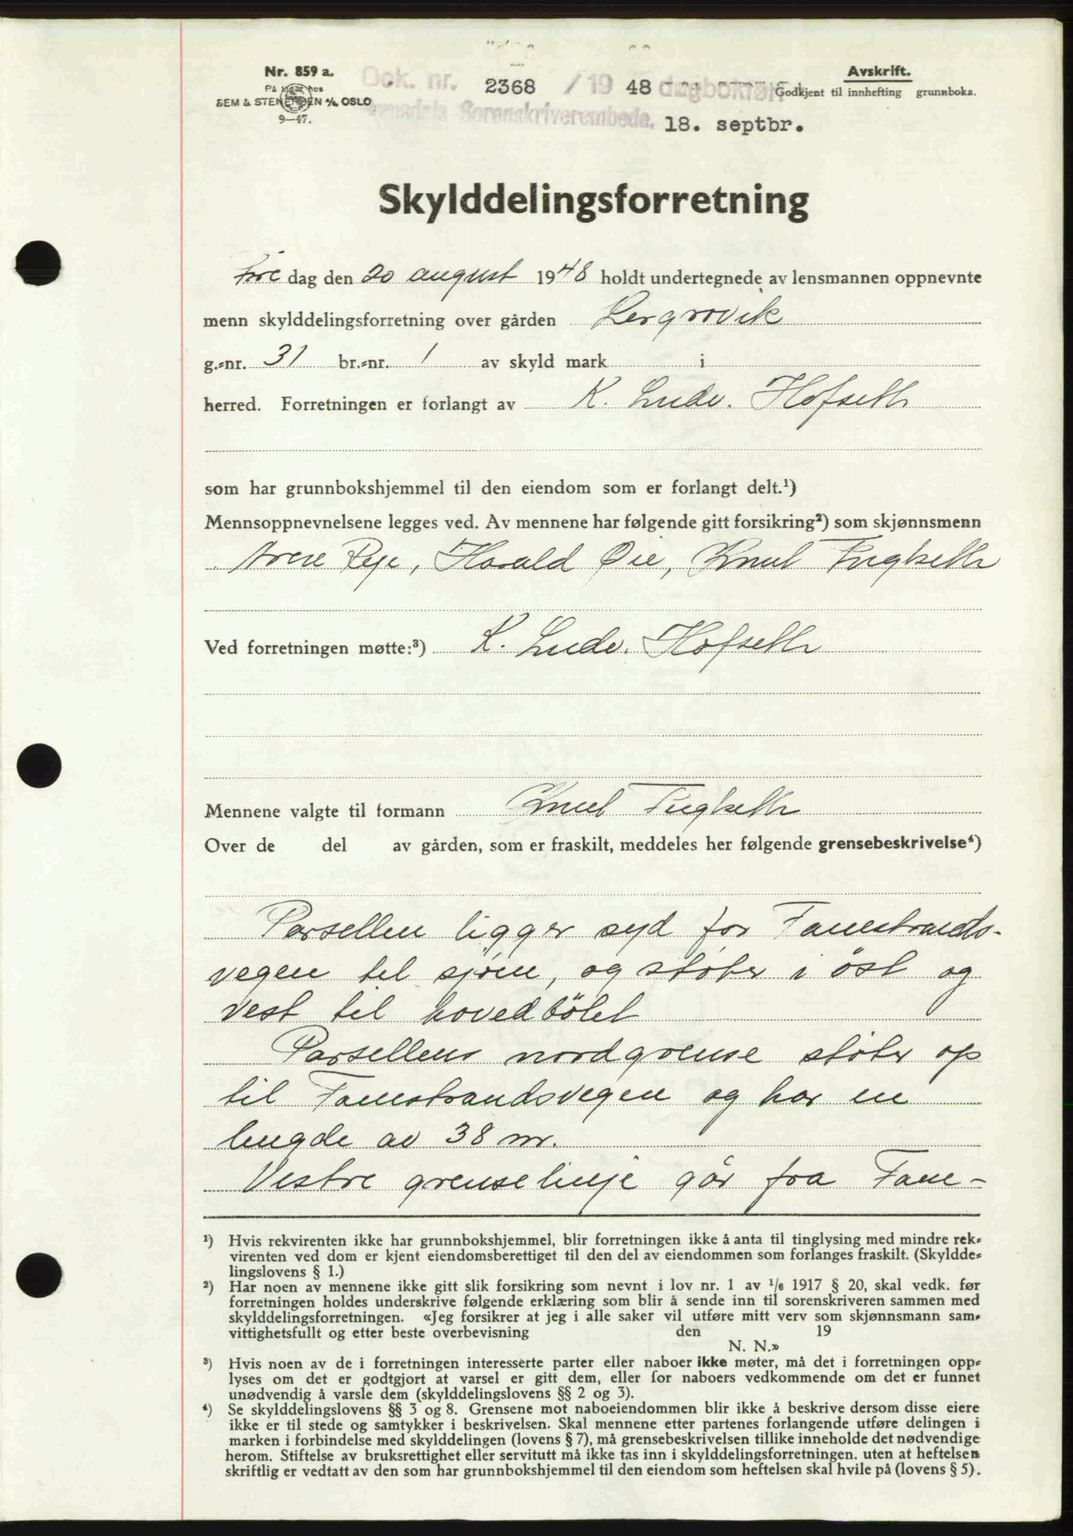 Nr. 859 a.
På lager hos
SEM & STENERSEN A/S, OSLO
9—47.
Dok. nr. 2368 / 19 48 dagboknr.
Romsdals Sorenskriverembede. 18. septbr.
Avskrift.
Godkjent til innhefting grunnboka.
Skylddelingsforretning
Fre dag den 20 august 1948 holdt undertegnede av lensmannen oppnevnte
menn skylddelingsforretning over gården Lergrovik
g.-nr. 31 br.-nr. 1 av skyld mark i
herred. Forretningen er forlangt av K. Ludv. Hofseth
som har grunnbokshjemmel til den eiendom som er forlangt delt.¹)
Mennsoppnevnelsene legges ved. Av mennene har følgende gitt forsikring²) som skjønnsmenn
Arne Røje, Harald Øie, Knut Fugkseth
Ved forretningen møtte:³) K. Ludv. Hofseth
Mennene valgte til formann Knut Fugkseth
Over de del av gården, som er fraskilt, meddeles her følgende grensebeskrivelse⁴)
Parsellen ligger syd for Fanestrands-
vegen til sjøen, og støter i øst og
vest til hovedbølet
Parsellens nordgrense støter op
til Fanestrandsvegen og har en
lengde av 38 m.
Vestre grenselinje går fra Fane-
¹) Hvis rekvirenten ikke har grunnbokshjemmel, blir forretningen ikke å anta til tinglysing med mindre rek-
virenten ved dom er kjent eiendomsberettiget til den del av eiendommen som forlanges fraskilt. (Skyldde-
lingslovens § 1.)
²) Har noen av mennene ikke gitt slik forsikring som nevnt i lov nr. 1 av 1/6 1917 § 20, skal vedk. før
forretningen holdes underskrive følgende erklæring som blir å sende inn til sorenskriveren sammen med
skylddelingsforretningen. «Jeg forsikrer at jeg i alle saker vil utføre mitt verv som skjønnsmann sam-
vittighetsfullt og etter beste overbevisning den 19
N. N.»
³) Hvis noen av de i forretningen interesserte parter eller naboer ikke møter, må det i forretningen opp-
lyses om det er godtgjort at varsel er gitt dem, eller for naboers vedkommende om det er funnet
unødvendig å varsle dem (skylddelingslovens §§ 2 og 3).
⁴) Se skylddelingslovens §§ 3 og 8. Grensene mot naboeiendommen blir ikke å beskrive dersom disse eiere
ikke er til stede og samtykker i beskrivelsen. Skal mennene etter partenes forlangende utføre delingen i
marken i forbindelse med skylddelingen (lovens § 7), må grensebeskrivelsen tillike inneholde det nødvendige
herom. Stiftelse av bruksrettighet eller servitutt må ikke tas inn i skylddelingsforretningen, uten at heftelsen
skriftlig er vedtatt av den som har grunnbokshjemmel til den eiendom som heftelsen skal hvile på (lovens § 5).